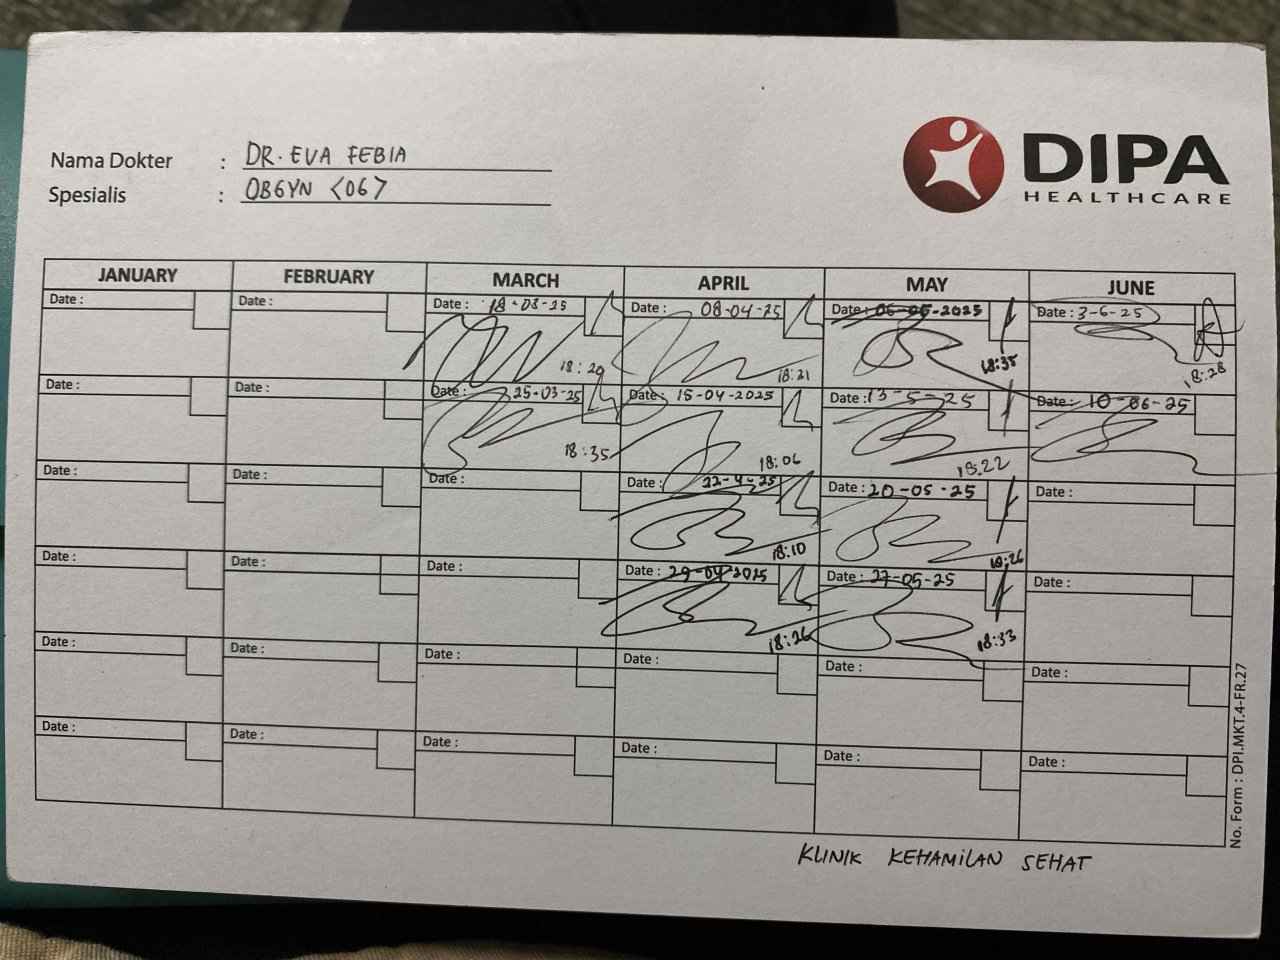 Nama Dokter : DR. EVA FEBIA
Spesialis : OBGYN <06>
DIPA
HEALTHCARE
JANUARY FEBRUARY MARCH APRIL MAY JUNE
Date : Date : Date : 18-03-25 Date : 08-04-25 Date : 06-05-2025 Date : 3-6-25
18:20 18:21 18:35 18:28
Date : Date : Date : 25-03-25 Date : 15-04-2025 Date : 13-5-25 Date : 10-06-25
18:35 18:06 18:22
Date : Date : Date : Date : 22-4-25 Date : 20-05-25 Date :
18:10 18:26
Date : Date : Date : Date : 29-04-2025 Date : 27-05-25 Date :
18:26 18:33
Date : Date : Date : Date : Date : Date :
Date : Date : Date : Date : Date : Date :
No. Form : DPI.MKT.4-FR.27
KLINIK KEHAMILAN SEHAT